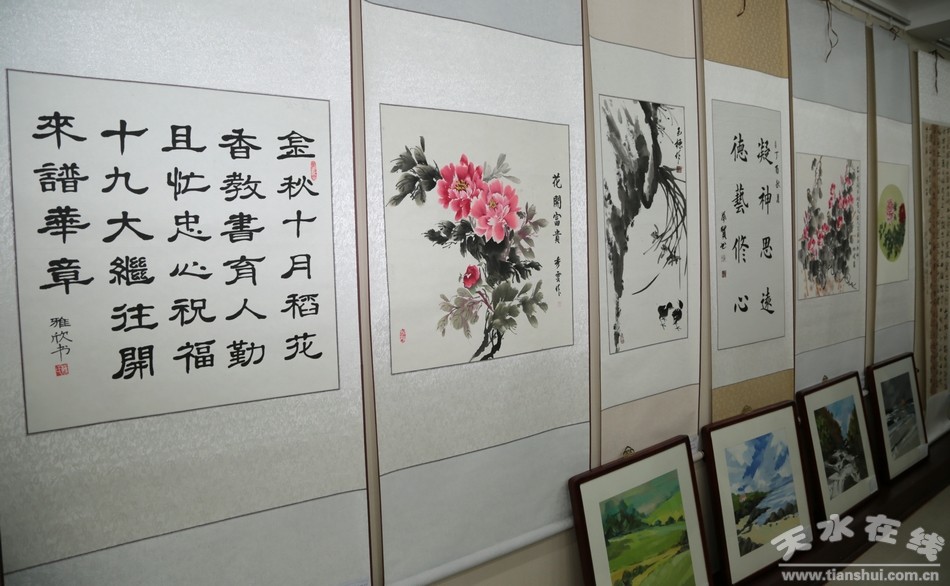 金秋十月稻花
香教書有人勤
且忙忠心祝福
十九大繼往開
來譜華章
雅欣书
花開富貴
凝神思遠
德藝修心
天水在线
www.tianshui.com.cn